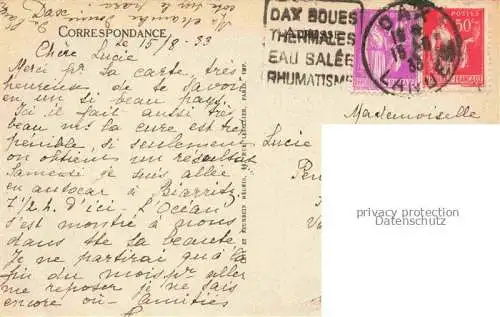 Dax
Ma chambre
CORRESPONDANCE
le 15/8/33
Chère Lucie
Merci pr la carte, très
heureuse de te savoir
en un si beau pays.
Ici il fait aussi très
beau ms la cure est très
pénible, si seulement
on obtient un résultat
Samedi je suis allée
en autocar à Biarritz
1/2 h. d'ici. L'Océan
s'est montré à nous
dans tte sa beauté
Je ne partirai qu'à la
fin du mois pr aller
me reposer je ne sais
encore où. Amitiés
DAX BOUES
THERMALES
EAU SALÉE
RHUMATISMES
DAX
50c
Mademoiselle
Lucie
privacy protection
Datenschutz